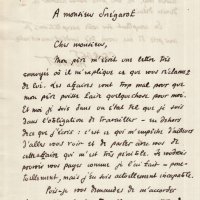 A monsieur Srégarot
Cher monsieur,
Mon père m'écrit une lettre très
ennuyée où il m'explique ce que vous réclamez de
lui. Les affaires vont trop mal pour que
mon père puisse faire quelque chose pour moi.
Et moi je suis dans un état tel que je suis
dans l'obligation de travailler – en dehors
de ce que j'écris : c'est ce qui m'empêche d'ailleurs
d'aller vous voir et de parler avec vous de
cette affaire qui m'est très pénible. Je voudrais
pouvoir vous payer comme je l'ai fait – ponc-
tuellement, mais j'en suis actuellement incapable.
Puis-je vous demander de m'accorder